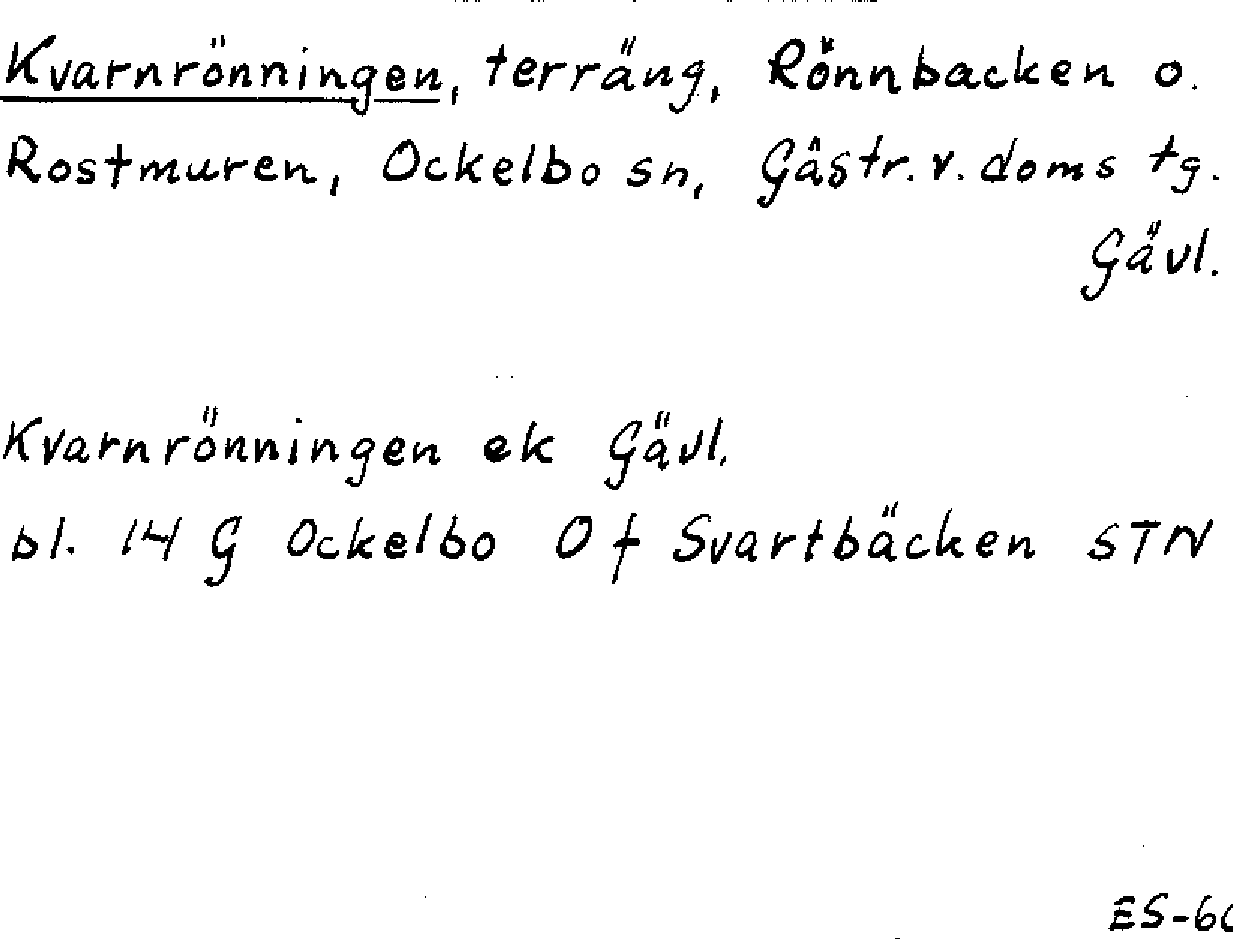 Kvarnrönningen, terräng, Rönnbacken o.
Rostmuren, Ockelbo sn, Gästr. v. doms tg.
Gävl.
Kvarnrönningen ek Gävl.
bl. 14 G Ockelbo Of Svartbäcken STN